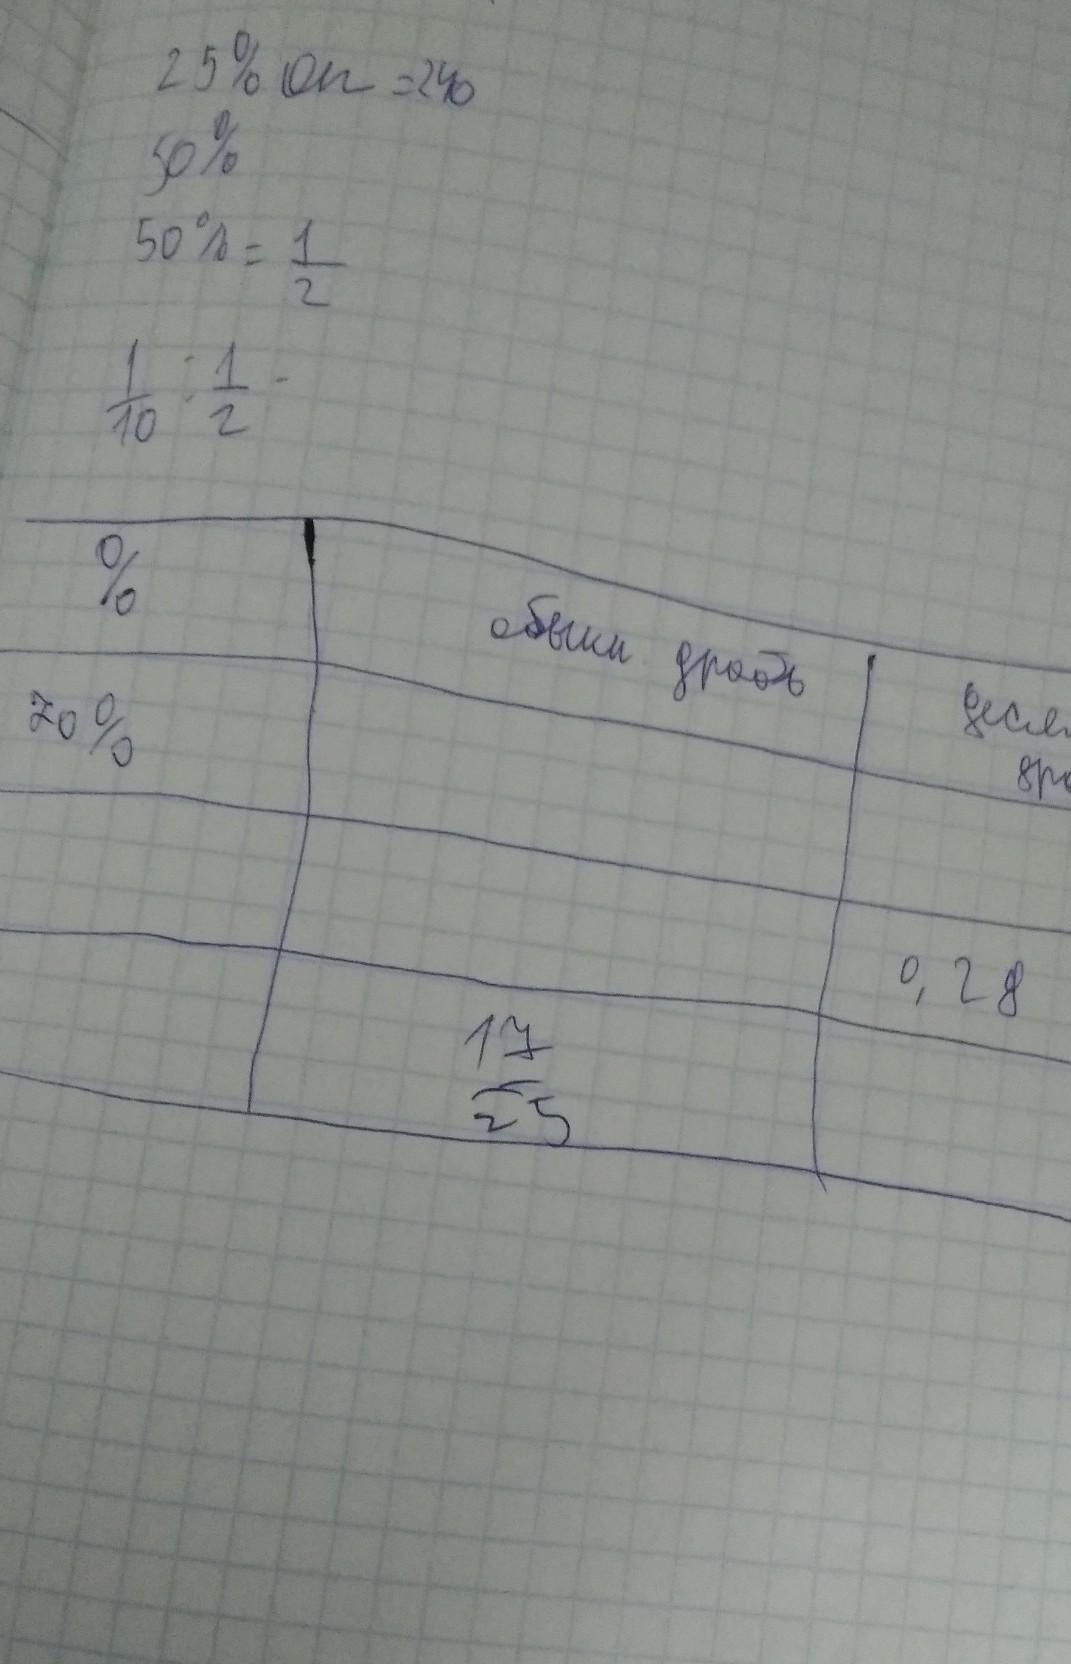 25% от =240
50%
50% = 1/2
1/10 : 1/2 -
% обыкн. дробь деся
дро
70%
0,28
17/25